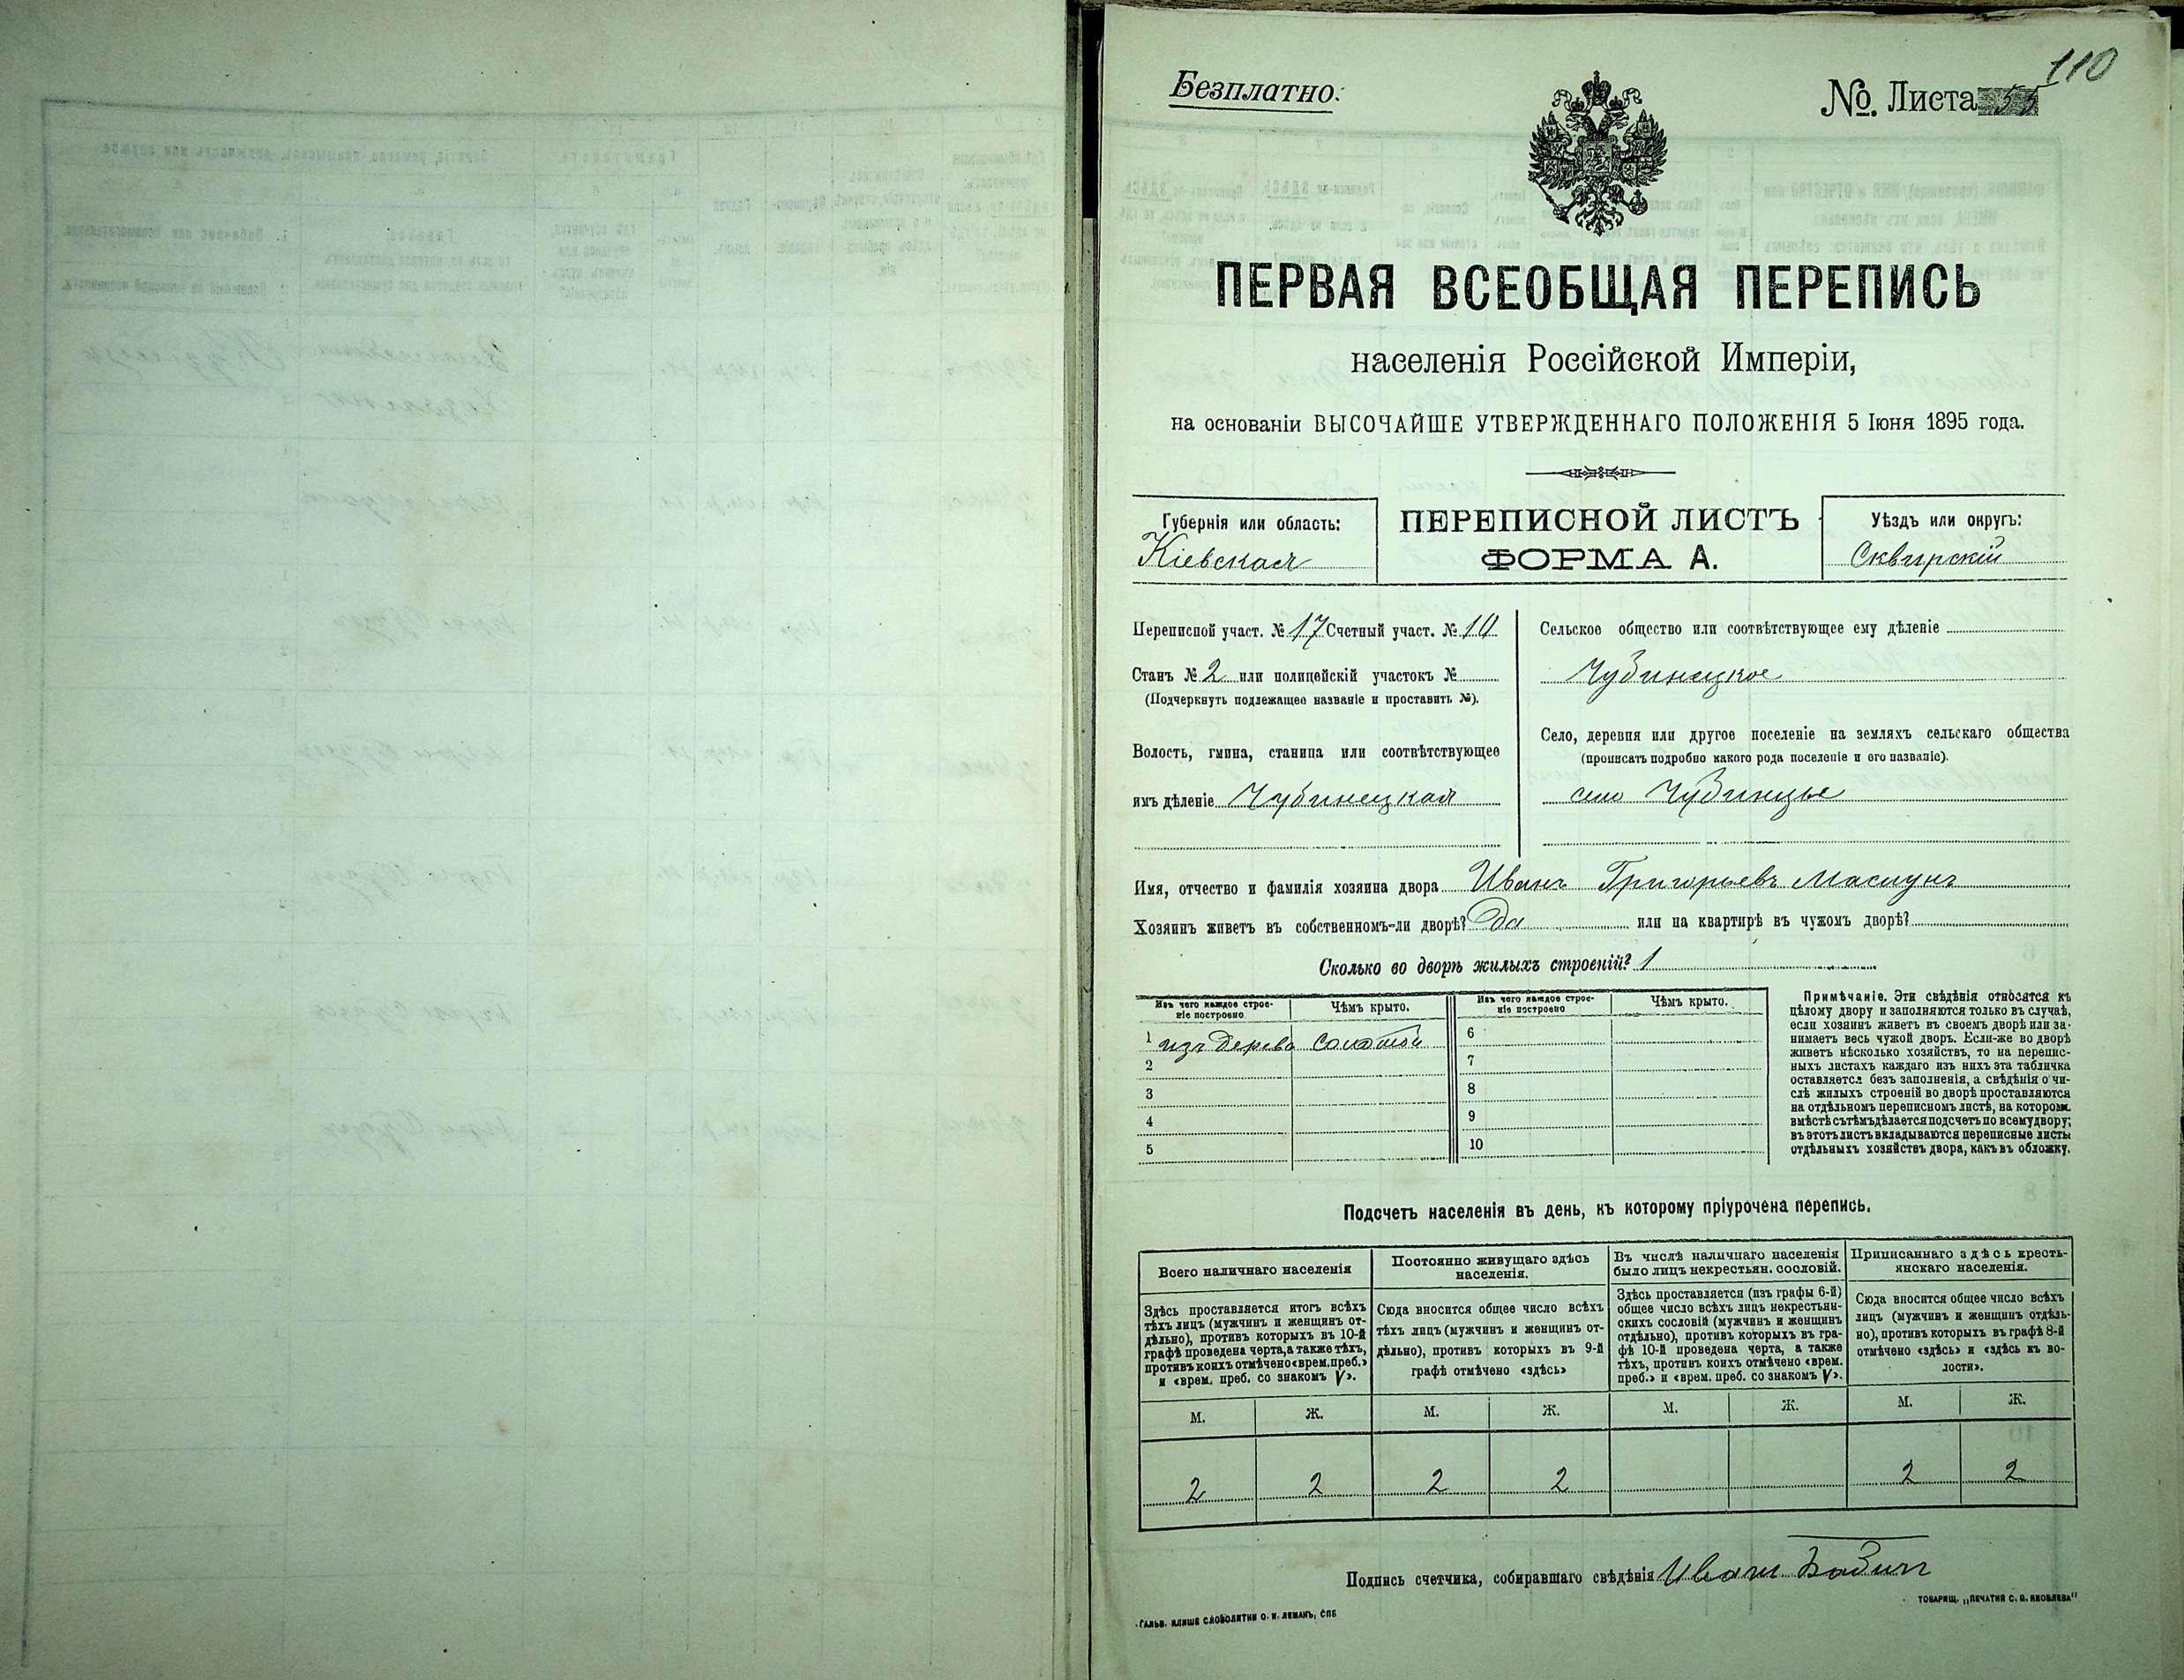 110
Безплатно.
№ Листа 55
ПЕРВАЯ ВСЕОБЩАЯ ПЕРЕПИСЬ
населенія Россійской Имперіи,
на основаніи ВЫСОЧАЙШЕ УТВЕРЖДЕННАГО ПОЛОЖЕНІЯ 5 Іюня 1895 года.
Губернія или область:
Кіевская
ПЕРЕПИСНОЙ ЛИСТЪ
ФОРМА А.
Уѣздъ или округъ:
Сквирскій
Переписной участ. № 17 Счетный участ. № 10
Станъ № 2 или полицейскій участокъ №
(Подчеркнуть подлежащее названіе и проставить №).
Волость, гмина, станица или соотвѣтствующее
имъ дѣленіе Чубинецкая
Сельское общество или соотвѣтствующее ему дѣленіе
Чубинецкое
Село, деревня или другое поселеніе на земляхъ сельскаго общества
(прописать подробно какого рода поселеніе и его названіе).
село Чубинцы
Имя, отчество и фамилія хозяина двора Иванъ Григорьевъ Маслунъ
Хозяинъ живетъ въ собственномъ-ли дворѣ? Да или на квартирѣ въ чужомъ дворѣ?
Сколько во дворѣ жилыхъ строеній? 1
Изъ чего каждое строе-
ніе построено
Чѣмъ крыто.
1 изъ дерева соломой
2
3
4
5
Изъ чего каждое строе-
ніе построено
Чѣмъ крыто.
6
7
8
9
10
Примѣчаніе. Эти свѣдѣнія относятся къ
цѣлому двору и заполняются только въ случаѣ,
если хозяинъ живетъ въ своемъ дворѣ или за-
нимаетъ весь чужой дворъ. Если-же во дворѣ
живетъ нѣсколько хозяйствъ, то на перепис-
ныхъ листахъ каждаго изъ нихъ эта табличка
оставляется безъ заполненія, а свѣдѣнія о чи-
слѣ жилыхъ строеній во дворѣ проставляются
на отдѣльномъ переписномъ листѣ, на котором
вмѣстѣ съ тѣмъ дѣлается подсчетъ по всему двору;
въ этотъ листъ вкладываются переписные листы
отдѣльныхъ хозяйствъ двора, какъ въ обложку.
Подсчетъ населенія въ день, къ которому пріурочена перепись.
Всего наличнаго населенія
Здѣсь проставляется итогъ всѣхъ
тѣхъ лицъ (мужчинъ и женщинъ от-
дѣльно), противъ которыхъ въ 10-й
графѣ проведена черта, а также тѣхъ,
противъ коихъ отмѣчено «врем. преб.»
и «врем. преб. со знакомъ V».
Постоянно живущаго здѣсь
населенія.
Сюда вносится общее число всѣхъ
тѣхъ лицъ (мужчинъ и женщинъ от-
дѣльно), противъ которыхъ въ 9-й
графѣ отмѣчено «здѣсь»
Въ числѣ наличнаго населенія
было лицъ некрестьян. сословій.
Здѣсь проставляется (изъ графы 6-й)
общее число всѣхъ лицъ некрестьян-
скихъ сословій (мужчинъ и женщинъ
отдѣльно), противъ которыхъ въ гра-
фѣ 10-й проведена черта, а также
тѣхъ, противъ коихъ отмѣчено «врем.
преб.» и «врем. преб. со знакомъ V».
Приписаннаго здѣсь кресть-
янскаго населенія.
Сюда вносится общее число всѣхъ
лицъ (мужчинъ и женщинъ отдѣль-
но), противъ которыхъ въ графѣ 8-й
отмѣчено «здѣсь» и «здѣсь къ во-
лости».
М. Ж. М. Ж. М. Ж. М. Ж.
2 2 2 2 2 2
Подпись счетчика, собиравшаго свѣдѣнія Иванъ Бабичъ
ГАЛЬВ. КЛИШЕ СЛОВОЛИТНИ О. И. ЛЕМАНЪ, СПБ
ТОВАРИЩ. „ПЕЧАТНЯ С. П. ЯКОВЛЕВА“